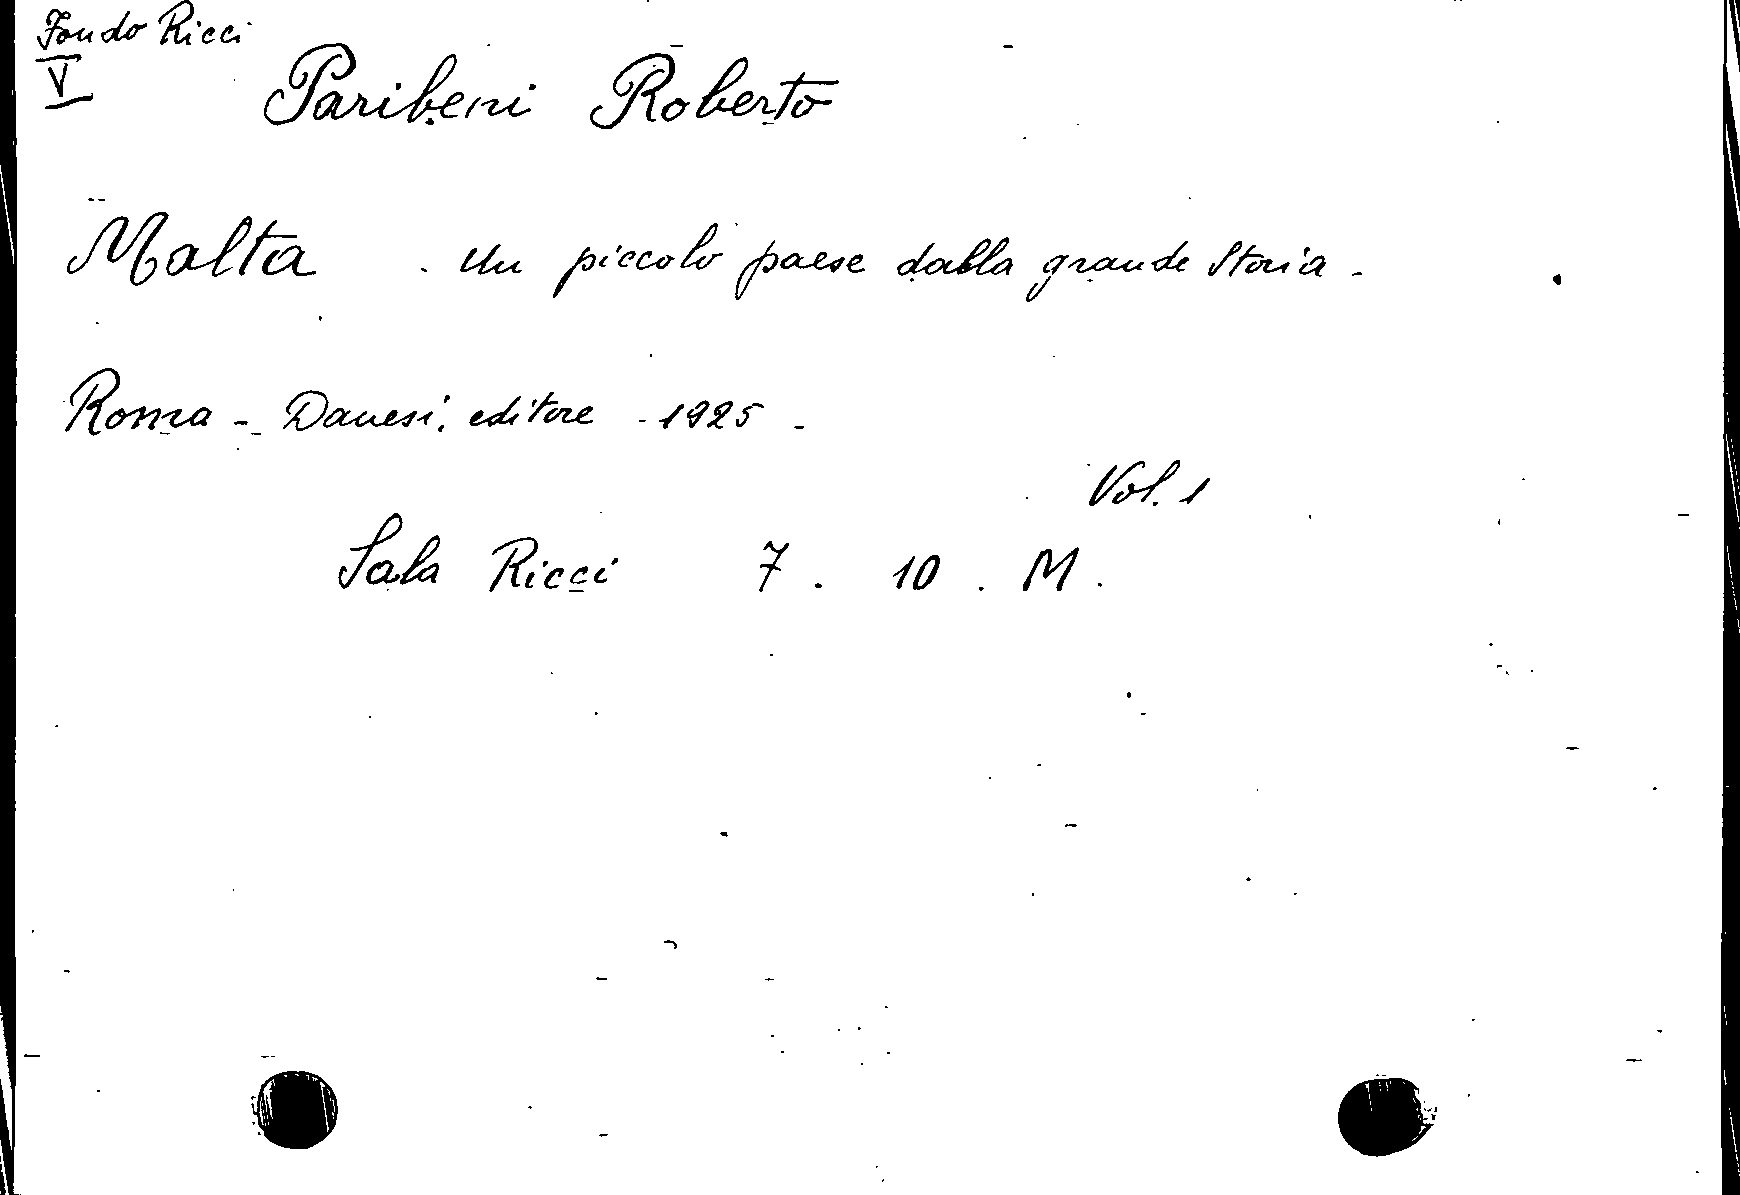 Fondo Ricci
V
Paribeni Roberto
Malta. Un piccolo paese dalla grande Storia -
Roma - Danesi, editore - 1925 -
Vol. 1
Sala Ricci 7. 10. M.